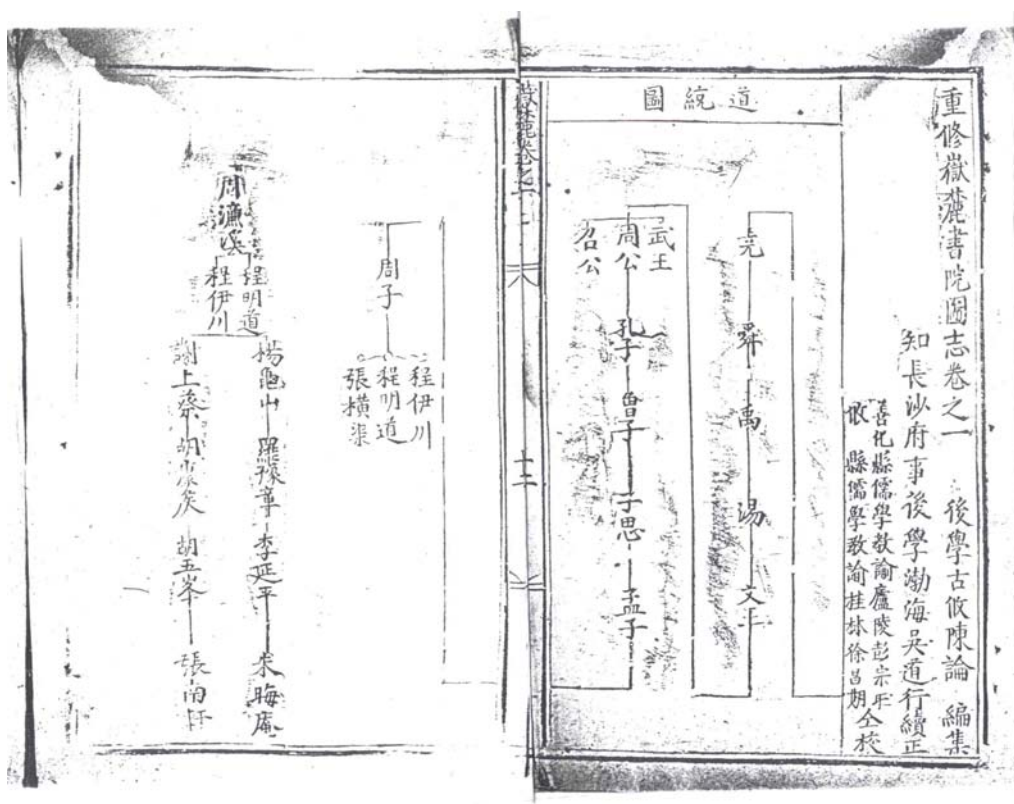 重修嶽麓書院圖志卷之一
後學古攸陳論 編集
知長沙府事後學渤海吳道行續正
善化縣儒學教諭廬陵彭宗旺
攸 縣儒學教諭桂林徐昌期 仝校
道統圖
堯 舜 禹 湯 文王
武王
周公 孔子 曾子 子思 孟子
召公
嶽麓卷之一
十二
周子
程伊川
程明道
張橫渠
周濂溪
程明道
程伊川
楊龜山 羅豫章 李延平 朱晦庵
謝上蔡 胡康侯 胡五峯 張南軒